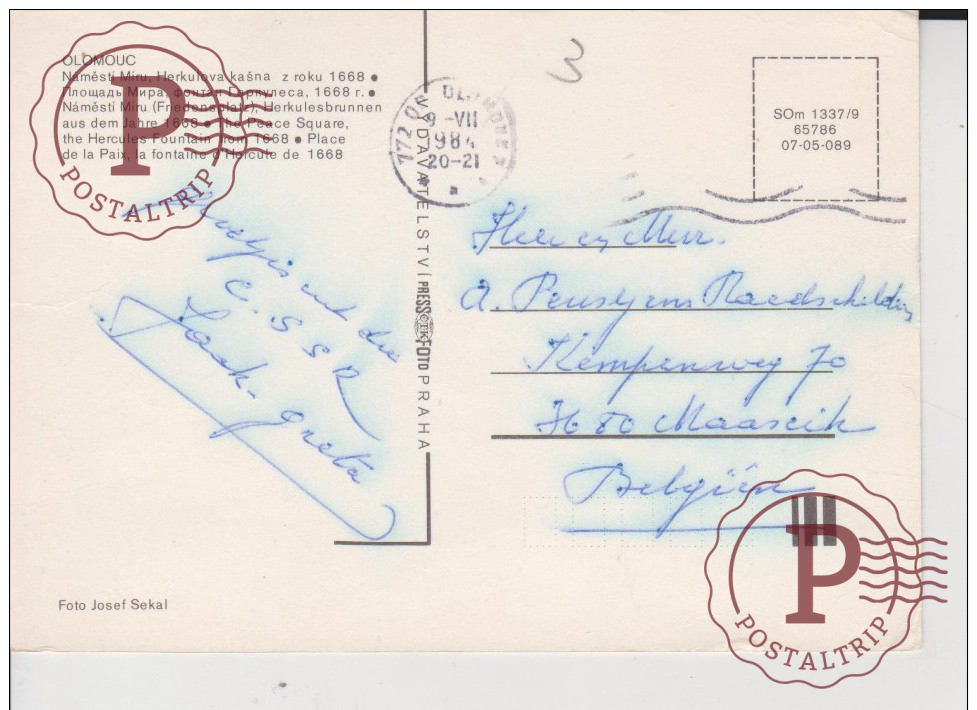 OLOMOUC
Náměstí Míru, Herkulova kašna z roku 1668 •
Площадь Мира, фонтан Геркулеса, 1668 г. •
Náměstí Míru (Friedensplatz), Herkulesbrunnen
aus dem Jahre 1668 • The Peace Square,
the Hercules Fountain from 1668 • Place
de la Paix, la fontaine d'Hercule de 1668
POSTALTRIP
C.S.S.R
Jaak-Greta
Foto Josef Sekal
VYDAVATELSTVÍ PRESSFOTO PRAHA
ČTK
3
772 00 OLOMOUC 2
9-VII
984
20-21
SOm 1337/9
65786
07-05-089
Heer en Mevr.
A. Peustjens Raedschelders
Kempenweg 70
3680 Maaseik
Belgiën
POSTALTRIP